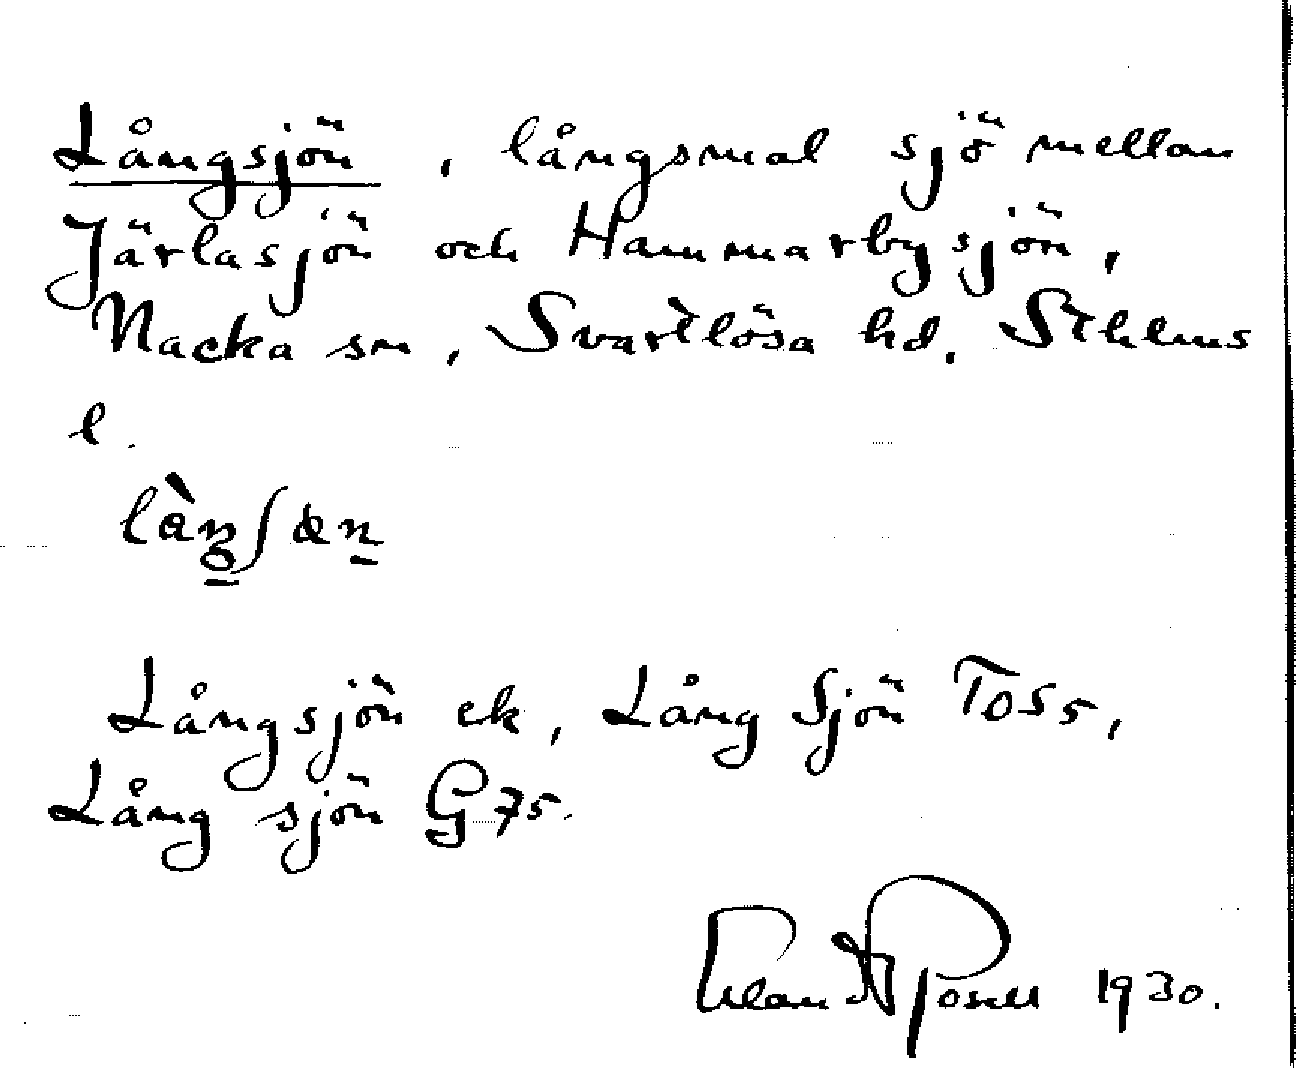 Långsjön, långsmal sjö mellan
Järlasjön och Hammarbysjön,
Nacka sn, Svartlösa hd. Sthlms
l.
Långsjön ek, Lång Sjön TOS5,
Lång sjön G 75.
1930.